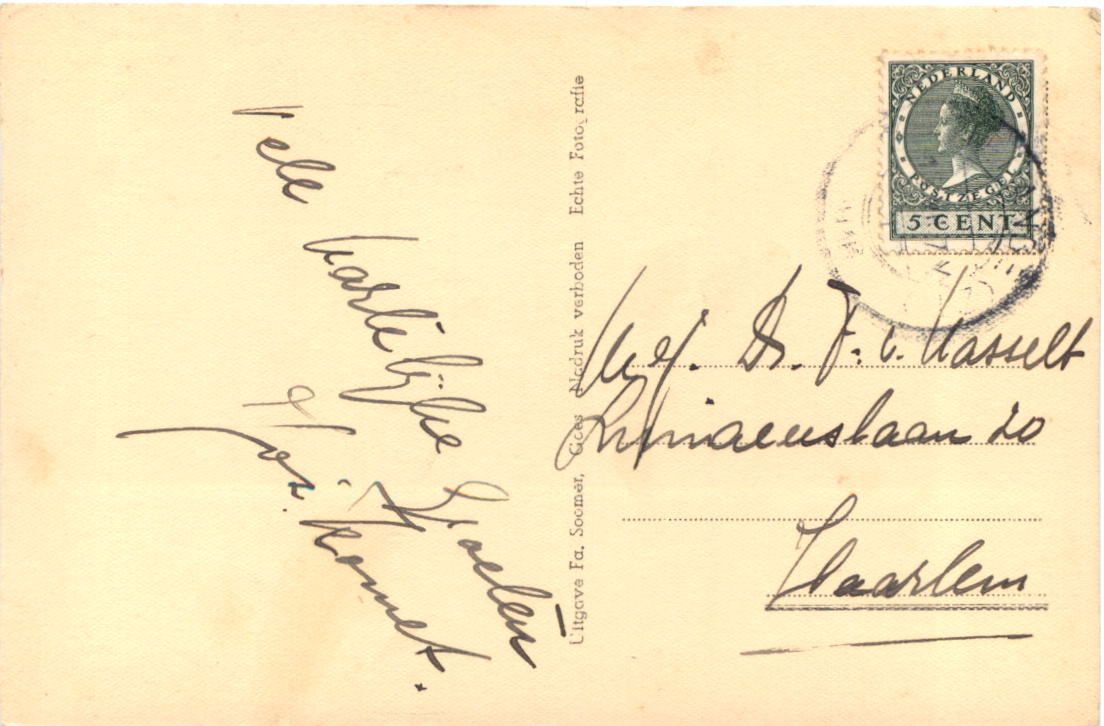 Vele hartelijke Groeten
Jos. Kornet.
Uitgave Fa. Soomer, Goes Nadruk verboden Echte Fotografie
NEDERLAND
POSTZEGEL
5 CENT
Mej. Dr. F. v. Hasselt
Linnaeuslaan 20
Haarlem